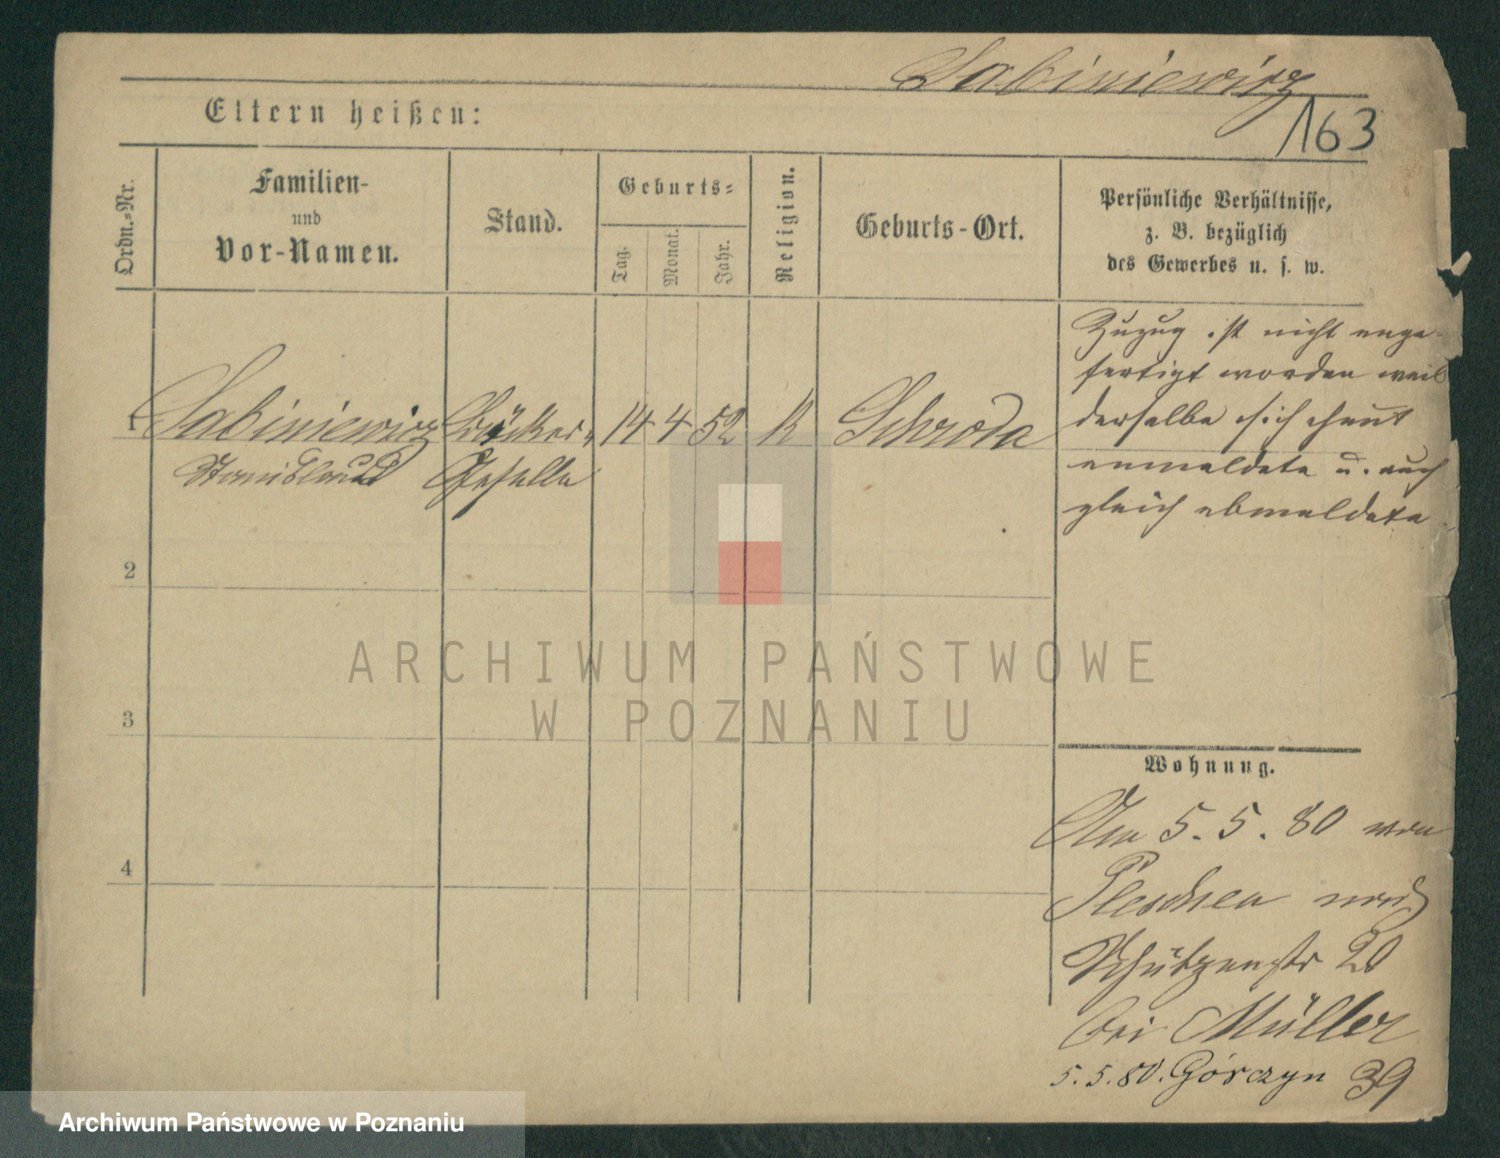 Sabiniewicz
163
Eltern heißen:
Ordn.=Nr.
Familien-
und
Vor-Namen.
Stand.
Geburts=
Tag.
Monat.
Jahr.
Religion.
Geburts-Ort.
Persönliche Verhältnisse,
z. B. bezüglich
des Gewerbes u. s. w.
1 Sabiniewicz Bäcker= 14 4 52 K Schroda
Stanislaus Geselle
Zuzug ist nicht ange-
fertigt worden weil
derselbe sich heut
anmeldete u. auch
gleich abmeldete
2
3
4
Wohnung.
Am 5. 5. 80 von
Pleschen nach
Schützenstr 20
bei Müller
5. 5. 80. Górczyn 39
ARCHIWUM PAŃSTWOWE
W POZNANIU
Archiwum Państwowe w Poznaniu